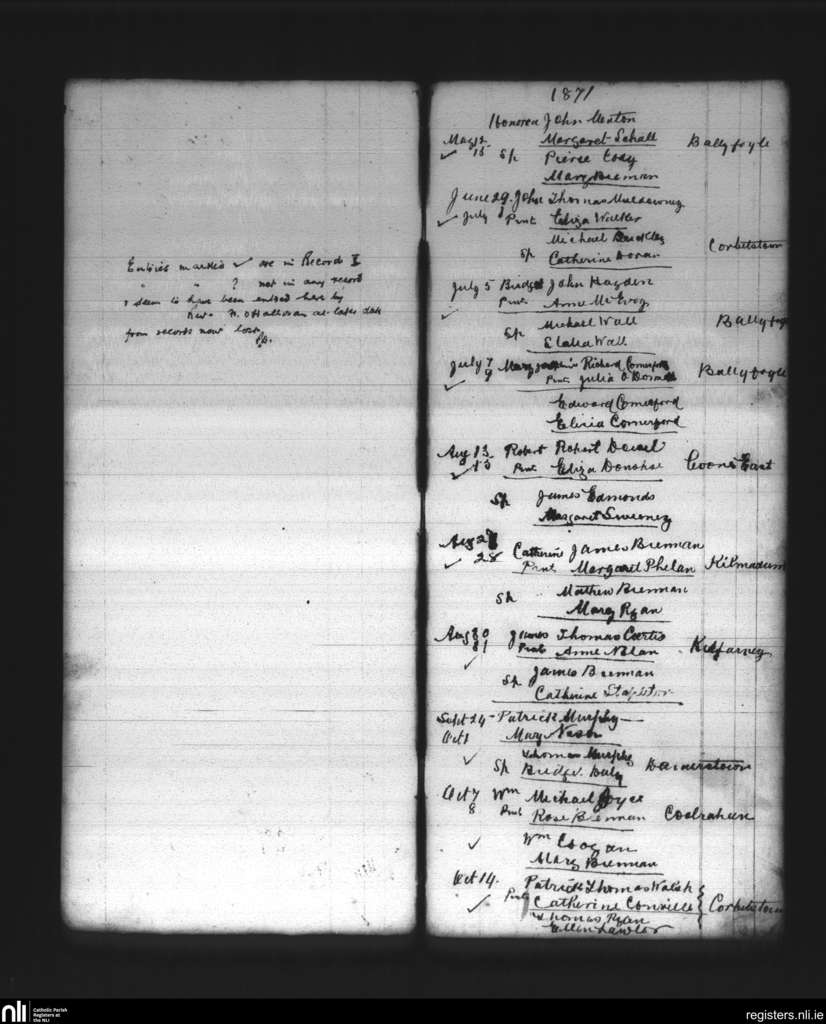 Entries marked ✓ are in Record II
" " ? not in any record
& seem to have been entered here by
Rev. H. O'Halloran at later date
from records now lost.
1871
Honorea John Menton
May 12 Margaret Schall Ballyfoyle
✓ 15 Sp Pierce Cody
Mary Brennan
June 29. John Thomas Muldowney
✓ July Prnt Eliza Walker
Michael Buckley
Sp Catherine Doran Corbetstown
July 5 Bridget John Hayden
Prnt Anne McEvoy
Sp Michael Wall Ballyfoy
Wall
July 7 Mary Josephine Richard Comerford
✓ 9 Prnt Julia O Doran Ballyfoyle
Edward Comerford
Elicia Comerford
Aug 13 Robert Robert Dowel
✓ 13 Prnt Eliza Donohoe Coone East
Sp James Edmonds
Margaret Sweeney
Aug 27 Catherine James Brennan
✓ 28 Prnt Margaret Phelan Kilmadum
Sp Mathew Brennan
Mary Ryan
Aug 30 James Thomas Curtis
31 Prnts Anne Nolan Kilfarney
✓
Sp James Brennan
Catherine Stapleton
Sept 24 - Patrick Murphy
Oct 1 Mary
✓ Thomas Murphy
Sp Bridget Daly
Oct 7 Wm Michael Joyce
8 Prnt Rose Brennan Coolraheen
✓ Wm Coogan
Mary Brennan
Oct 14. Patrick Thomas Walsh
✓ Prnts Catherine Conville Corbetstown
Thomas Ryan
Ellen Lawlor
nli Catholic Parish
Registers at
the NLI
registers.nli.ie